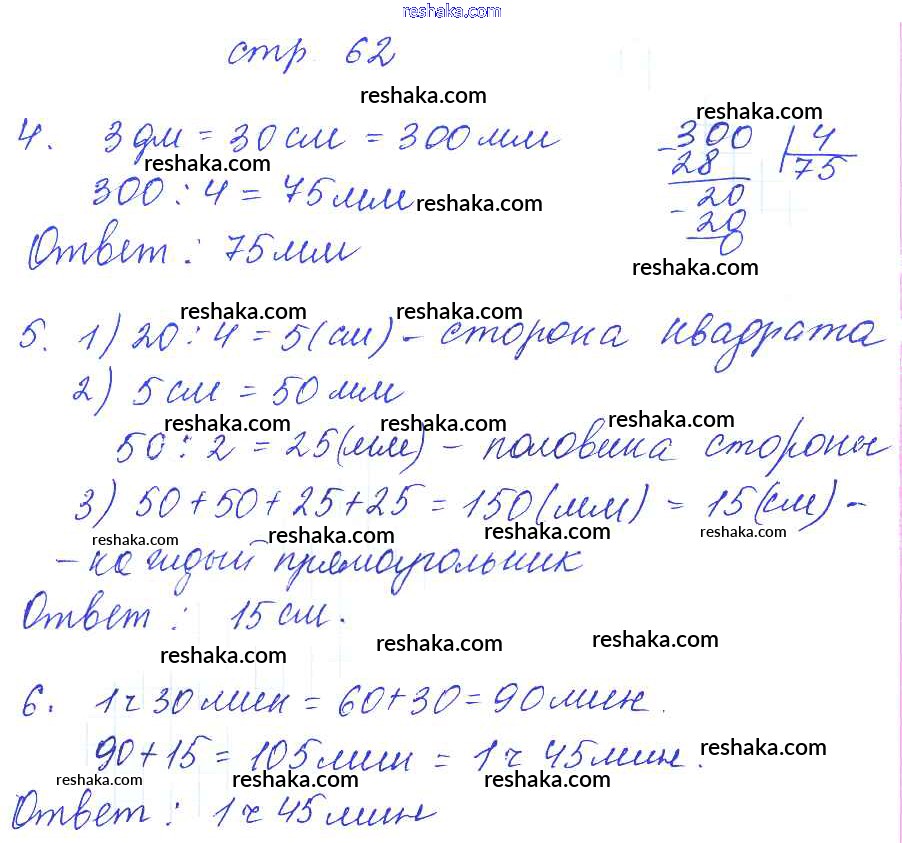 reshaka.com
стр. 62
reshaka.com
reshaka.com
4. 3 дм = 30 см = 300 мм
300 4
28 75
20
20
0
reshaka.com
300 : 4 = 75 мм
reshaka.com
Ответ : 75 мм
reshaka.com
reshaka.com reshaka.com
5. 1) 20 : 4 = 5 (см) - сторона квадрата
2) 5 см = 50 мм
reshaka.com reshaka.com reshaka.com
50 : 2 = 25 (мм) - половина стороны
3) 50 + 50 + 25 + 25 = 150 (мм) = 15 (см) -
reshaka.com reshaka.com reshaka.com reshaka.com
- каждый прямоугольник
Ответ : 15 см.
reshaka.com reshaka.com reshaka.com
6. 1 ч 30 мин = 60 + 30 = 90 мин.
90 + 15 = 105 мин = 1 ч 45 мин.
reshaka.com
reshaka.com reshaka.com reshaka.com
Ответ : 1 ч 45 мин